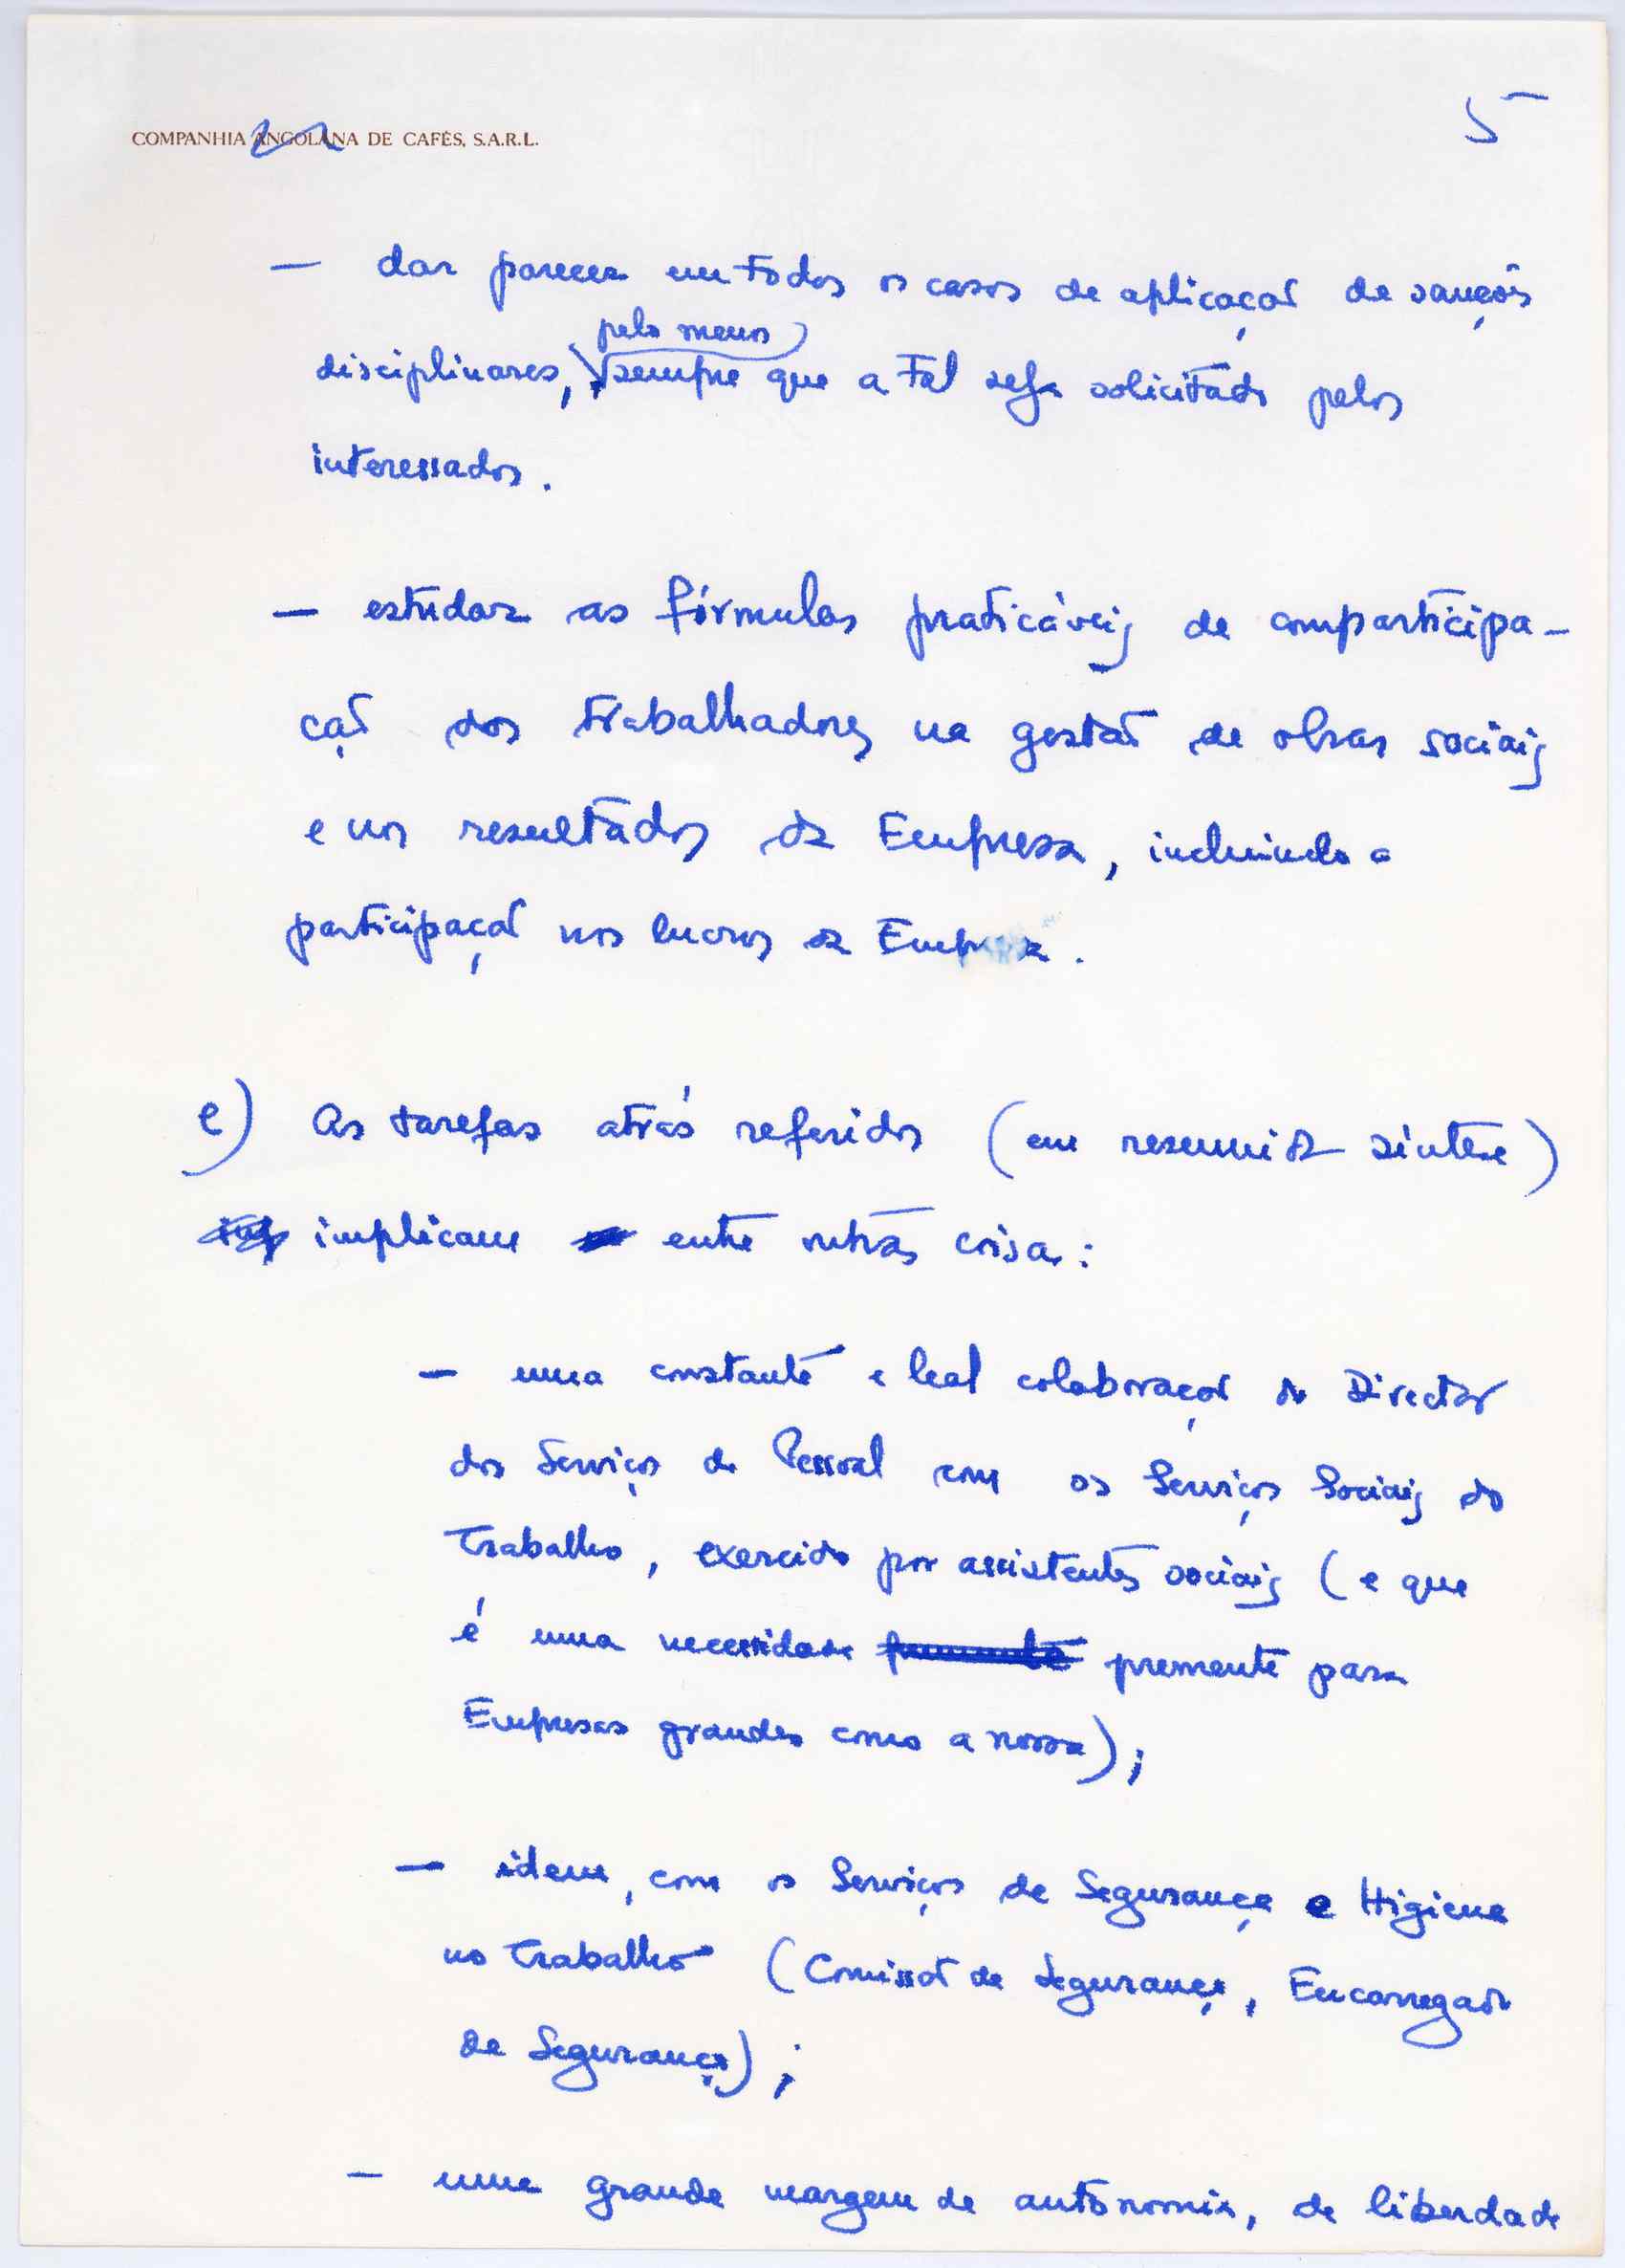 5
COMPANHIA ANGOLANA DE CAFÉS, S.A.R.L.
— dar parecer em todos os casos de aplicação de sanções
pelo menos
disciplinares, sempre que a tal seja solicitado pelos
interessados.
— estudar as fórmulas praticáveis de comparticipa-
ção dos trabalhadores na gestão de obras sociais
e nos resultados da Empresa, incluindo a
participação nos lucros da Empresa.
e) As tarefas atrás referidas (em resumida síntese)
implicam entre outras coisas:
— uma constante e leal colaboração do Director
dos Serviços de Pessoal com os Serviços Sociais do
Trabalho, exercido por assistentes sociais (e que
é uma necessidade premente para
Empresas grandes como a nossa);
— idem, com os Serviços de Segurança e Higiene
no Trabalho (Comissão de Segurança, Encarregado
de Segurança);
— uma grande margem de autonomia, de liberdade